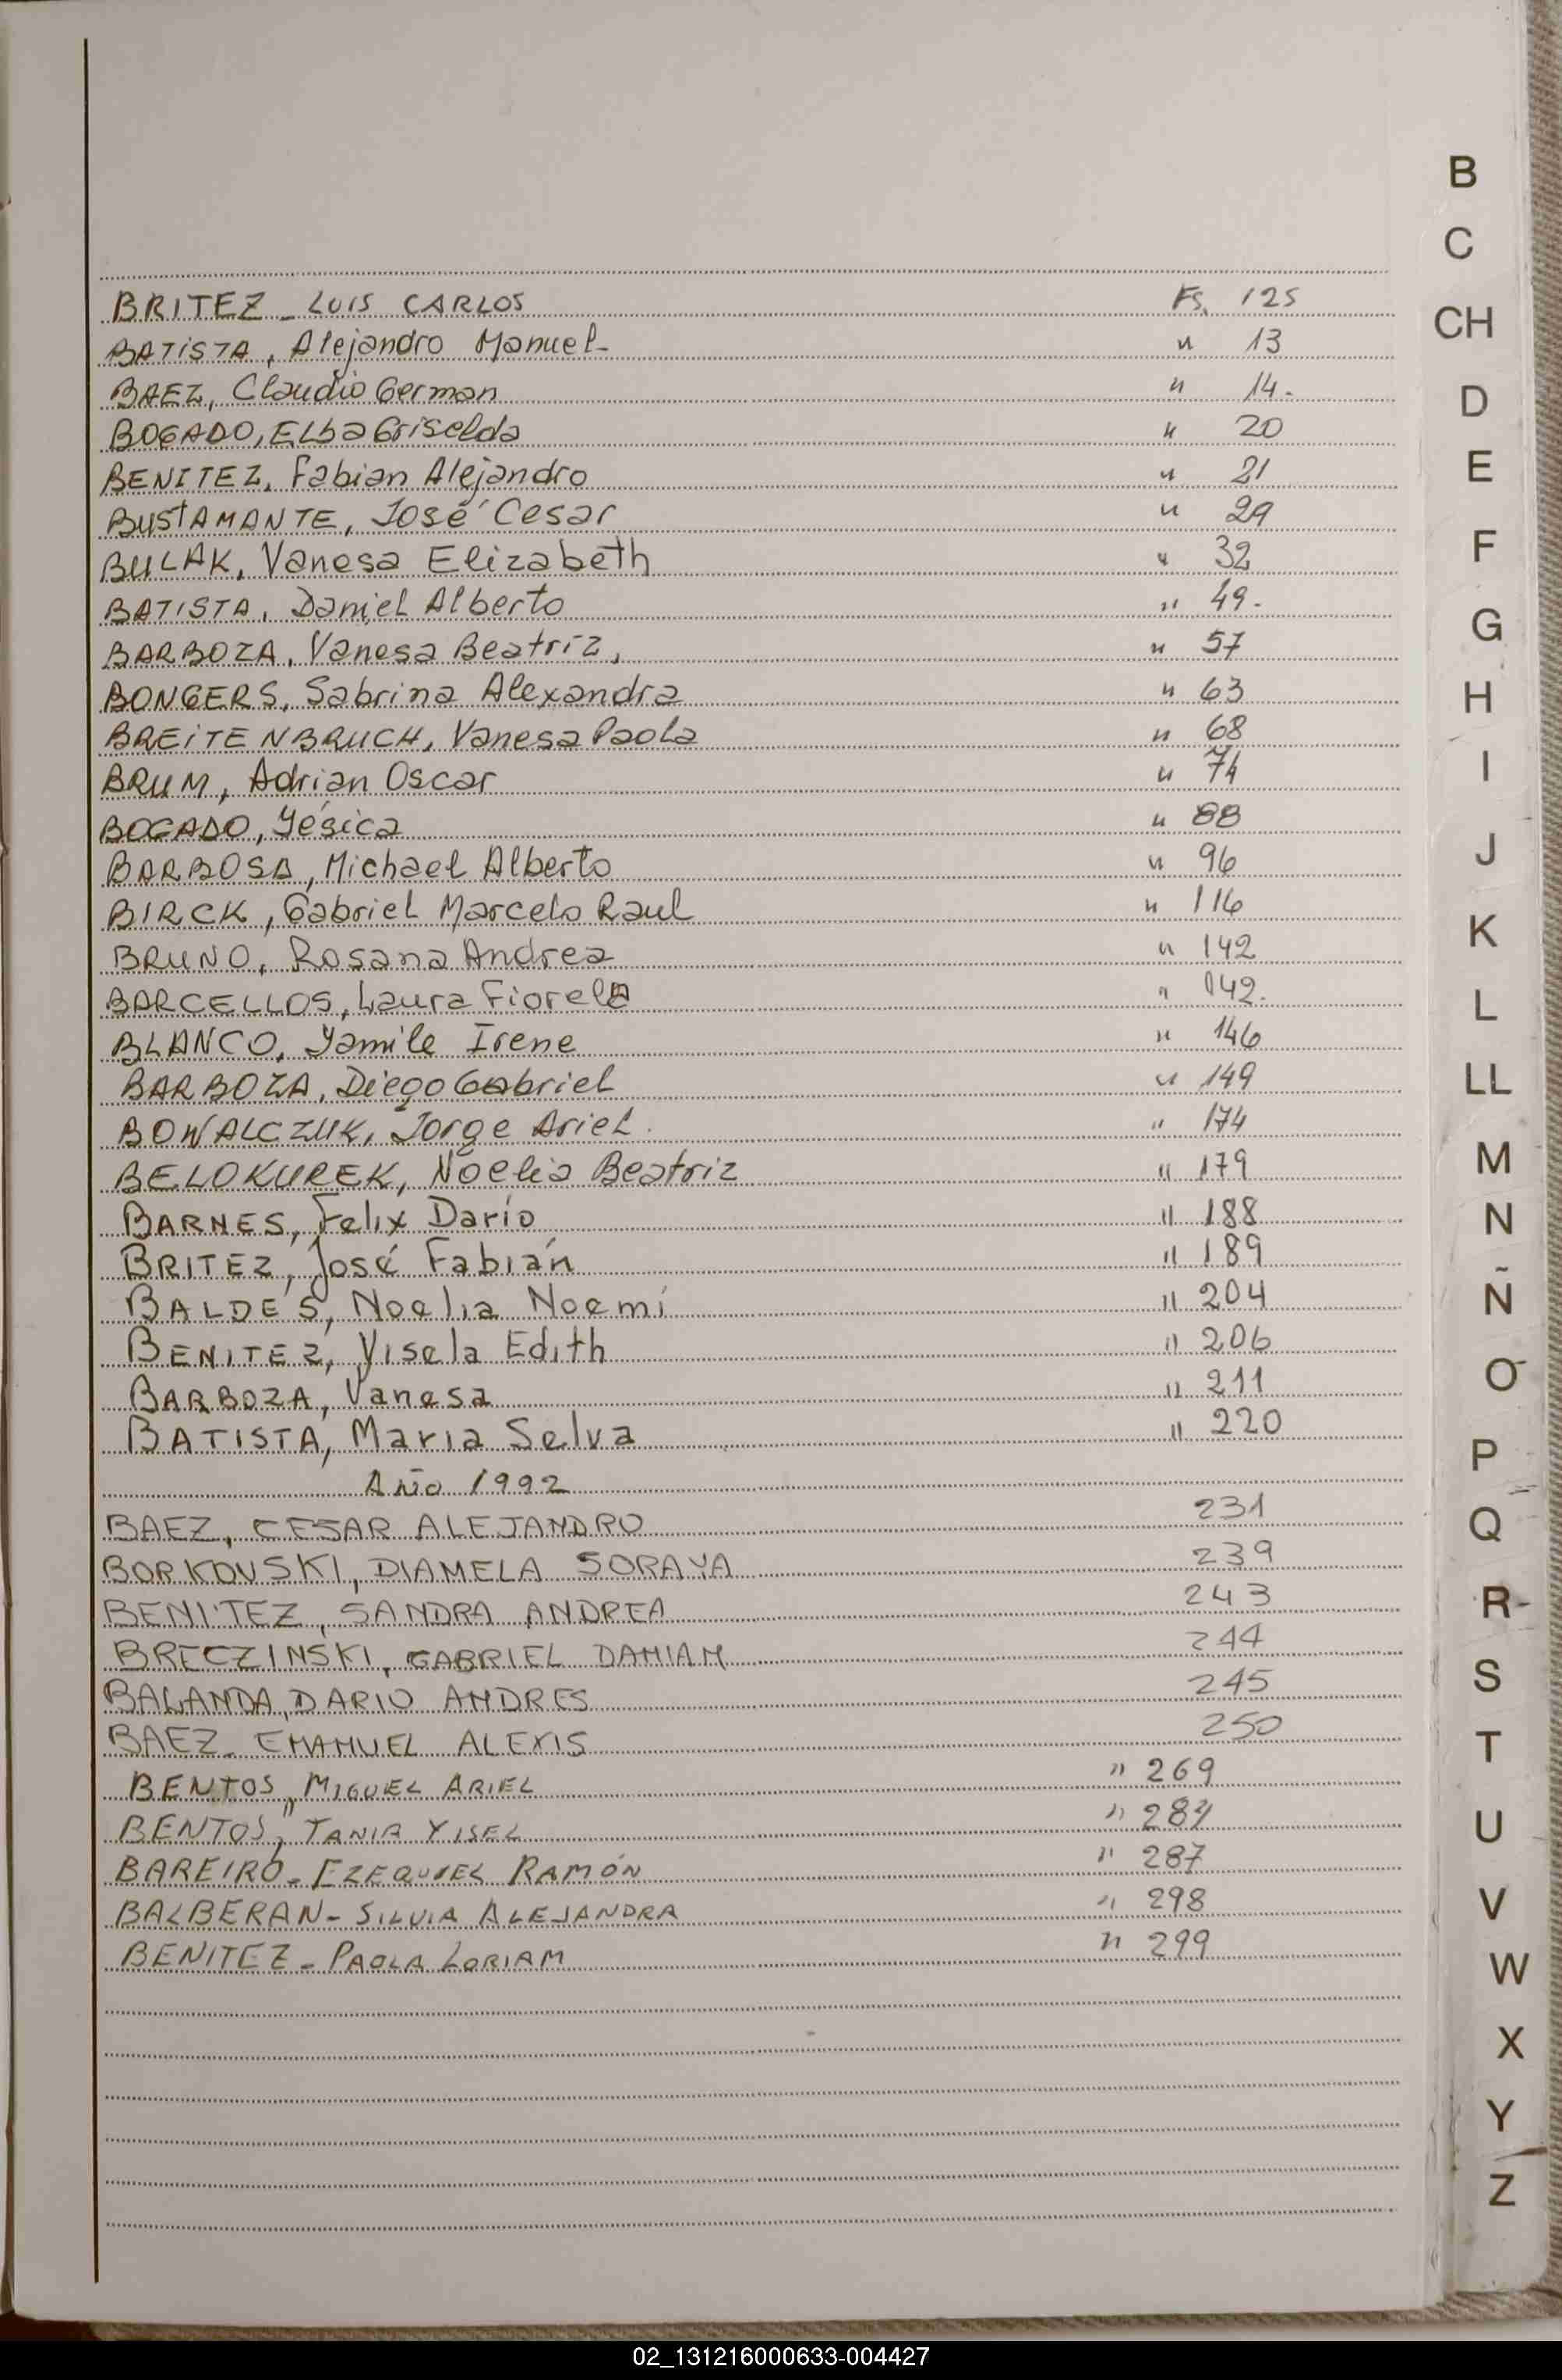 BRITEZ - LUIS CARLOS Fs. 125
BATISTA, Alejandro Manuel- " 13
BAEZ, Claudio German " 14.
BOGADO, Elba Griselda " 20
BENITEZ, Fabian Alejandro " 21
BUSTAMANTE, José Cesar " 29
BULAK, Vanesa Elizabeth " 32
BATISTA, Daniel Alberto " 49.
BARBOZA, Vanesa Beatriz, " 57
BONGERS, Sabrina Alexandra " 63
BREITENBRUCH, Vanesa Paola " 68
BRUM, Adrian Oscar " 74
BOGADO, Yésica " 88
BARBOSA, Michael Alberto " 96
BIRCK, Gabriel Marcelo Raul " 116
BRUNO, Rosana Andrea " 142
BARCELLOS, Laura Fiorela " 142.
BLANCO, Yamile Irene " 146
BARBOZA, Diego Gabriel " 149
BOWALCZUK, Jorge Ariel. " 174
BELOKUREK, Noelia Beatriz " 179
BARNES, Felix Darío " 188
BRITEZ, José Fabián " 189
BALDES, Noelia Noemí " 204
BENITEZ, Yisela Edith " 206
BARBOZA, Vanesa " 211
BATISTA, Maria Selva " 220
Año 1992
BAEZ, CESAR ALEJANDRO 231
BORKOVSKI, DIAMELA SORAYA 239
BENITEZ, SANDRA ANDREA 243
BRECZINSKI, GABRIEL DAMIAN 244
BALANDA, DARIO ANDRES 245
BAEZ - EMANUEL ALEXIS 250
BENTOS, MIGUEL ARIEL " 269
BENTOS, TANIA YISEL "
BAREIRO - EZEQUIEL RAMÓN " 287
BALBERAN - SILVIA ALEJANDRA " 298
BENITEZ - PAOLA LORIAM " 299
B
C
CH
D
E
F
G
H
I
J
K
L
LL
M
N
Ñ
O
P
Q
R
S
T
U
V
W
X
Y
Z
02_131216000633-004427